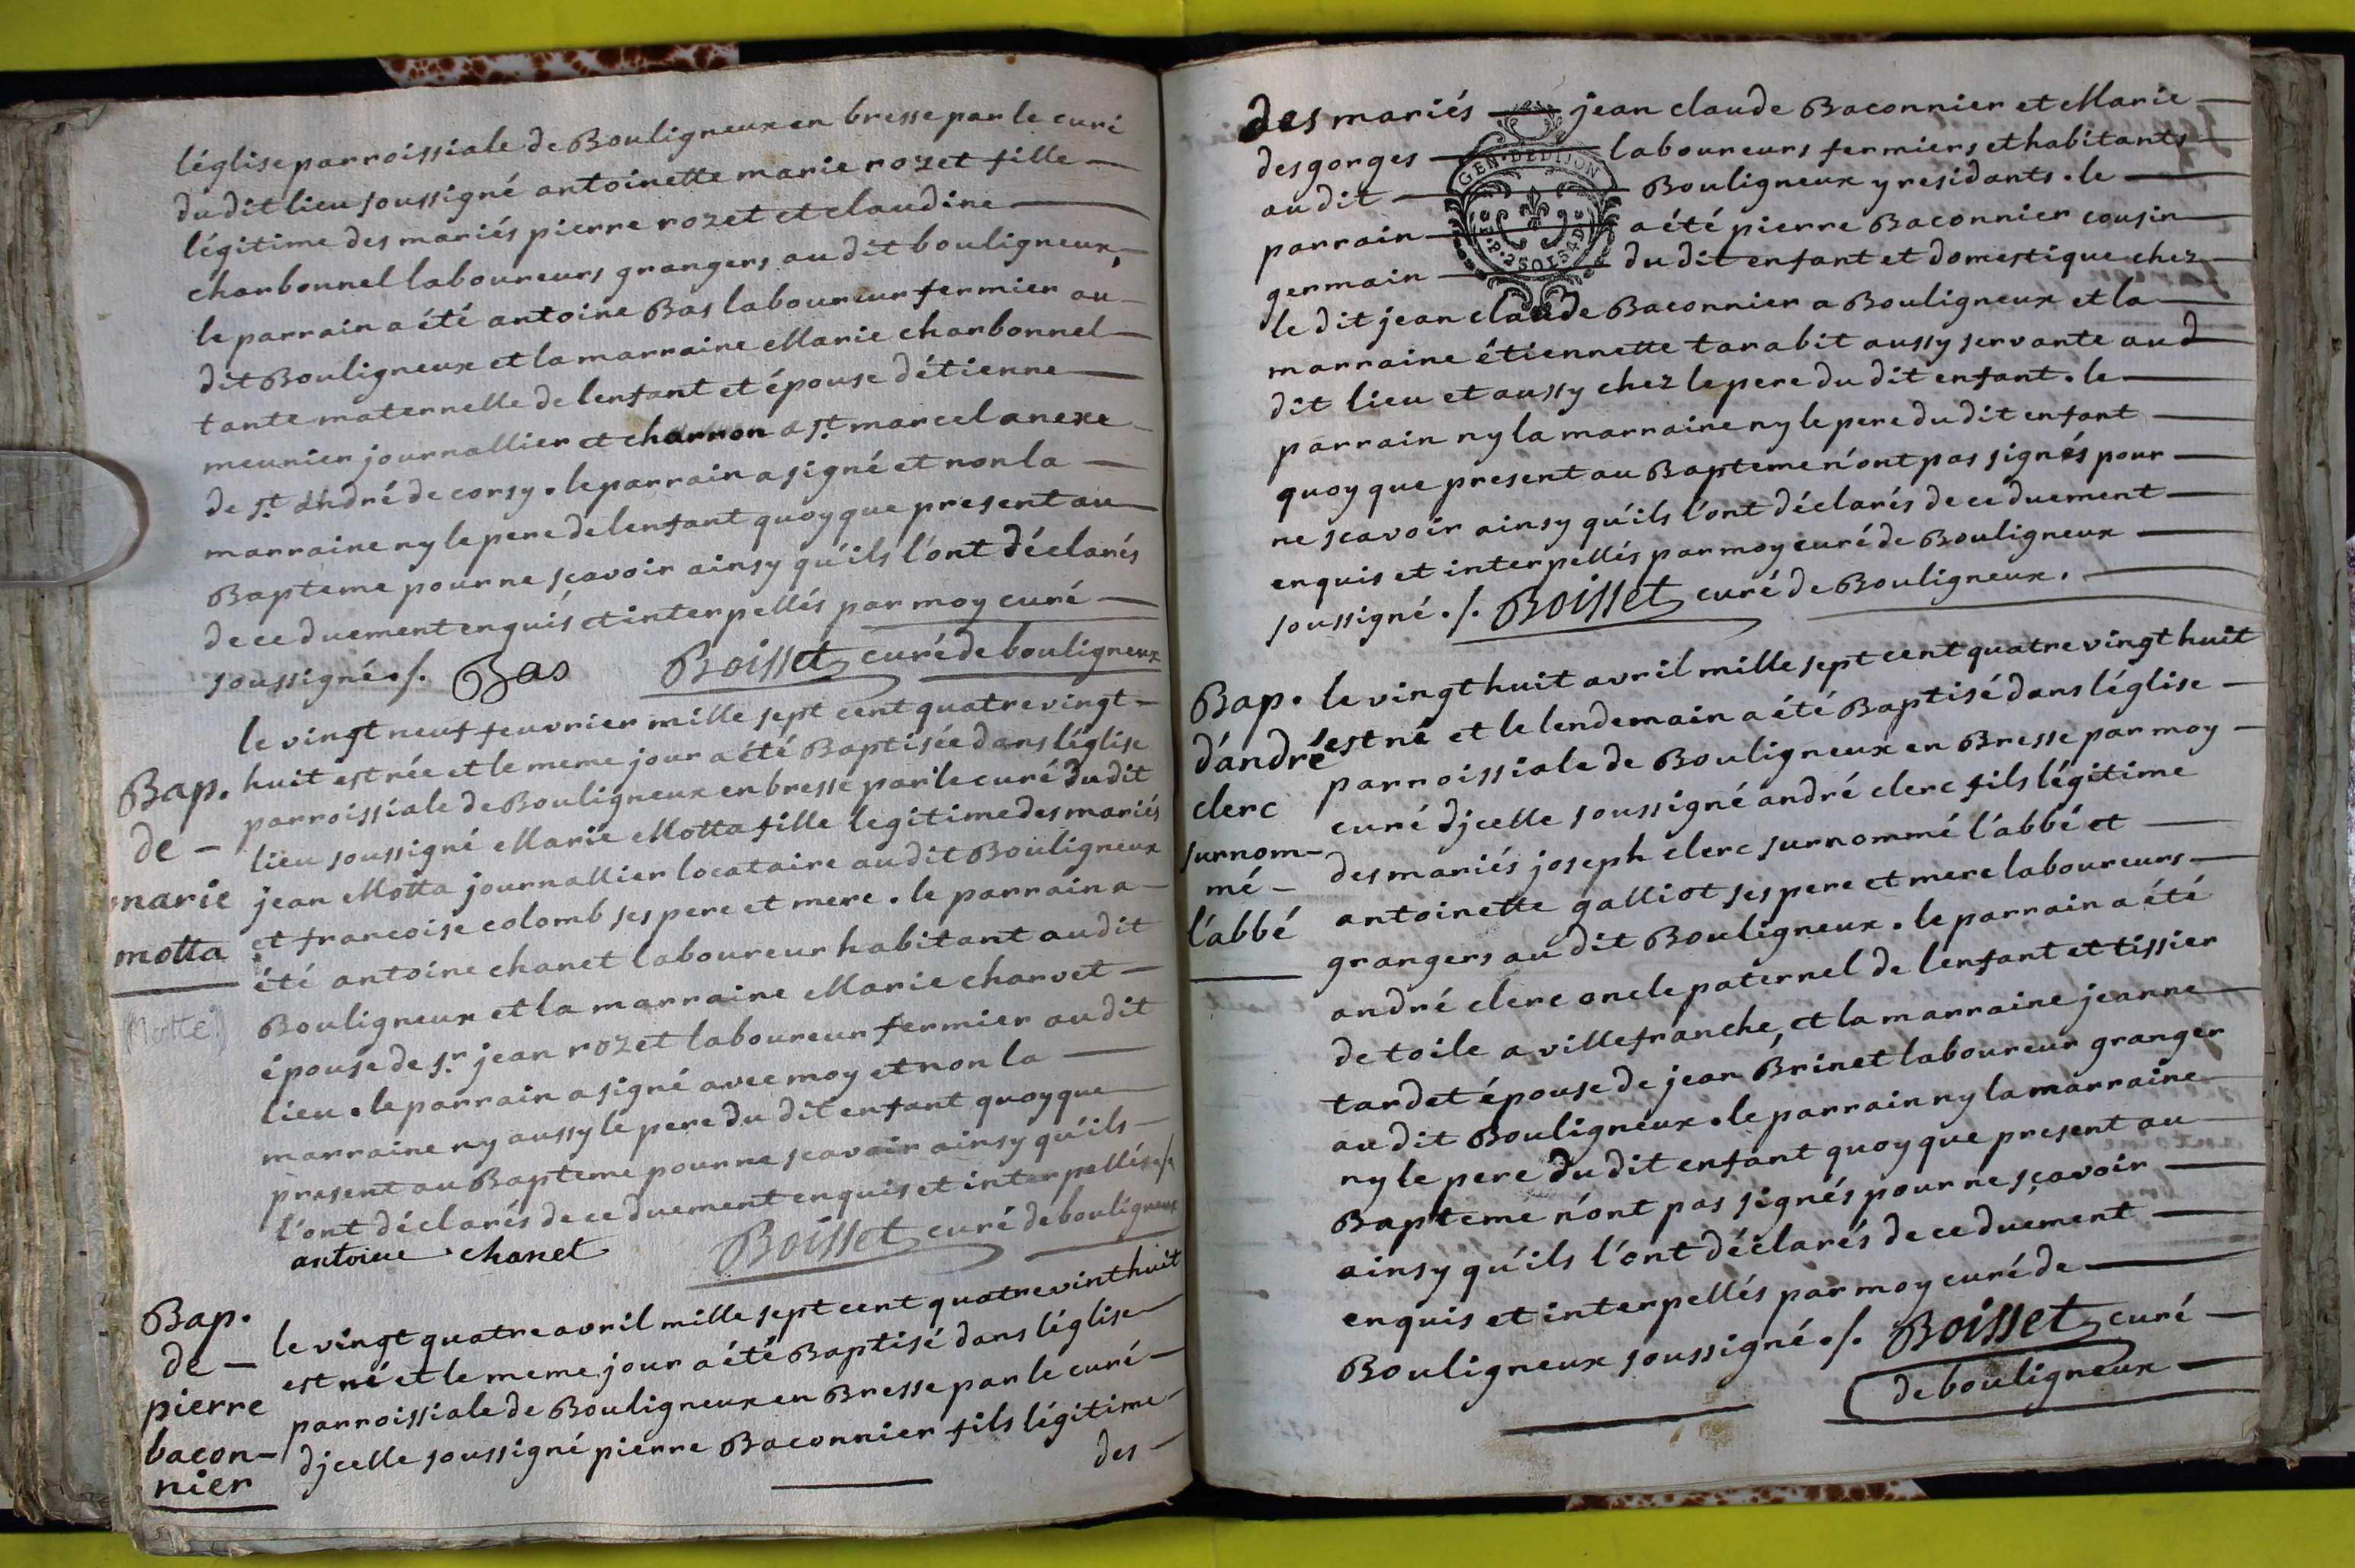 léglise parroissiale de Bouligneux en bresse par le curé
du dit lieu soussigné antoinette marie rozet fille
légitime des mariés pierre rozet et claudine
charbonnel laboureurs grangers au dit bouligneux,
le parrain a été antoine Bas laboureur fermier au
dit Bouligneux et la marraine Marie charbonnel
tante maternelle de lenfant et épouse détienne
meunier journallier et charron a st. marcel anexe
de st. André de corsy. le parrain a signé et non la
marraine ny le pere de lenfant quoy que present au
Bapteme pour ne sçavoir ainsy qu'ils l'ont déclarés
de ce duement enquis et interpellés par moy curé
soussigné ./. Bas Boisset curé de bouligneux
le vingt neuf feuvrier mille sept cent quatre vingt
Bap. huit est née et le meme jour a été Baptisée dans léglise
parroissiale de Bouligneux en bresse par le curé du dit
de - lieu soussigné Marie Motta fille legitime des mariés
marie jean Motta journallier locataire au dit Bouligneux
motta et francoise colomb ses pere et mere . le parrain a
été antoine chanet laboureur habitant au dit
Bouligneux et la marraine Marie charvet
(Motte)
épouse de sr. jean rozet laboureur fermier au dit
lieu . le parrain a signé avec moy et non la
marraine ny aussy le pere du dit enfant quoy que
present au Bapteme pour ne scavoir ainsy qu'ils
l'ont déclarés de ce duement enquis et interpellés ./.
antoine chanet Boisset curé de bouligneux
Bap.
de -
pierre
bacon-
nier
le vingt quatre avril mille sept cent quatre vint huit
est né et le meme jour a été Baptisé dans léglise
parroissiale de Bouligneux en Bresse par le curé
djcelle soussigné pierre Baconnier fils légitime
des
des mariés jean claude Baconnier et Marie
desgorges laboureurs fermiers et habitants
au dit Bouligneux y residants . le
parrain a été pierre Baconnier cousin
germain du dit enfant et domestique chez
GEN. DE DIJON
le dit jean claude Baconnier a Bouligneux et la
marraine étiennette tarabit aussy servante au d
dit lieu et aussy chez le pere du dit enfant . le
parrain ny la marraine ny le pere du dit enfant
quoy que present au Bapteme n'ont pas signés pour
ne scavoir ainsy qu'ils l'ont déclarés de ce duement
enquis et interpellés par moy curé de Bouligneux
soussigné ./. Boisset curé de Bouligneux .
Bap.
d'andré
clerc
surnom-
mé -
l'abbé
le vingt huit avril mille sept cent quatre vingt huit
est né et le lendemain a été Baptisé dans léglise
parroissiale de Bouligneux en Bresse par moy
curé djcelle soussigné andré clerc fils légitime
des mariés joseph clerc surnommé l'abbé et
antoinette galliot ses pere et mere laboureurs
grangers au dit Bouligneux . le parrain a été
andré clerc oncle paternel de lenfant et tissier
de toile a villefranche, et la marraine jeanne
tardet épouse de jean Brinet laboureur granger
au dit Bouligneux . le parrain ny la marraine
ny le pere du dit enfant quoy que present au
Bapteme n'ont pas signés pour ne sçavoir
ainsy qu'ils l'ont déclarés de ce duement
enquis et interpellés par moy curé de
Bouligneux soussigné ./. Boisset curé
de bouligneux